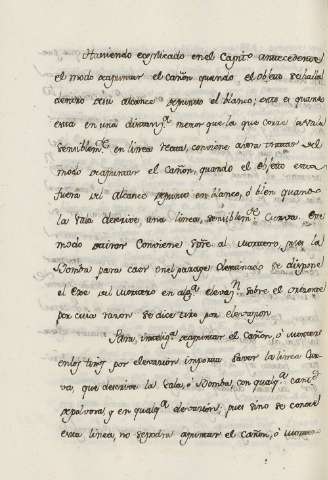 Haviendo explicado en el Capit.º antecedente
el modo de apuntar el cañon quando el objeto se halla
dentro del alcance de punto el blanco; esto es quando
esta en una distanz.ª menor que la que corre la Vala
sensiblem.te en linea recta, conviene aora tratar del
modo de apuntar el cañon, quando el objeto esta
fuera del alcance de punto en blanco, ó bien quando
la Vala describe una linea sensiblem.te Curva. Este
modo de tirar Conviene siempre al mortero, pues la
Bomba para caer en el parage destinado se dispone
el Exe del mortero en alg.ª elevaz.n sobre el orizonte
por cuia razon se dice tiro por elevazion.
Para intelig.ª de apuntar el Cañon, ó mortero
en los tiros por elevazion importa saver la linea Cur-
va, que describe la vala, ó Bomba, con qualq.ª cant.d
de polvora, y en qualq.ª elevazion; pues sino se conoce
esta linea, no se podra apuntar el cañon, ó mortero